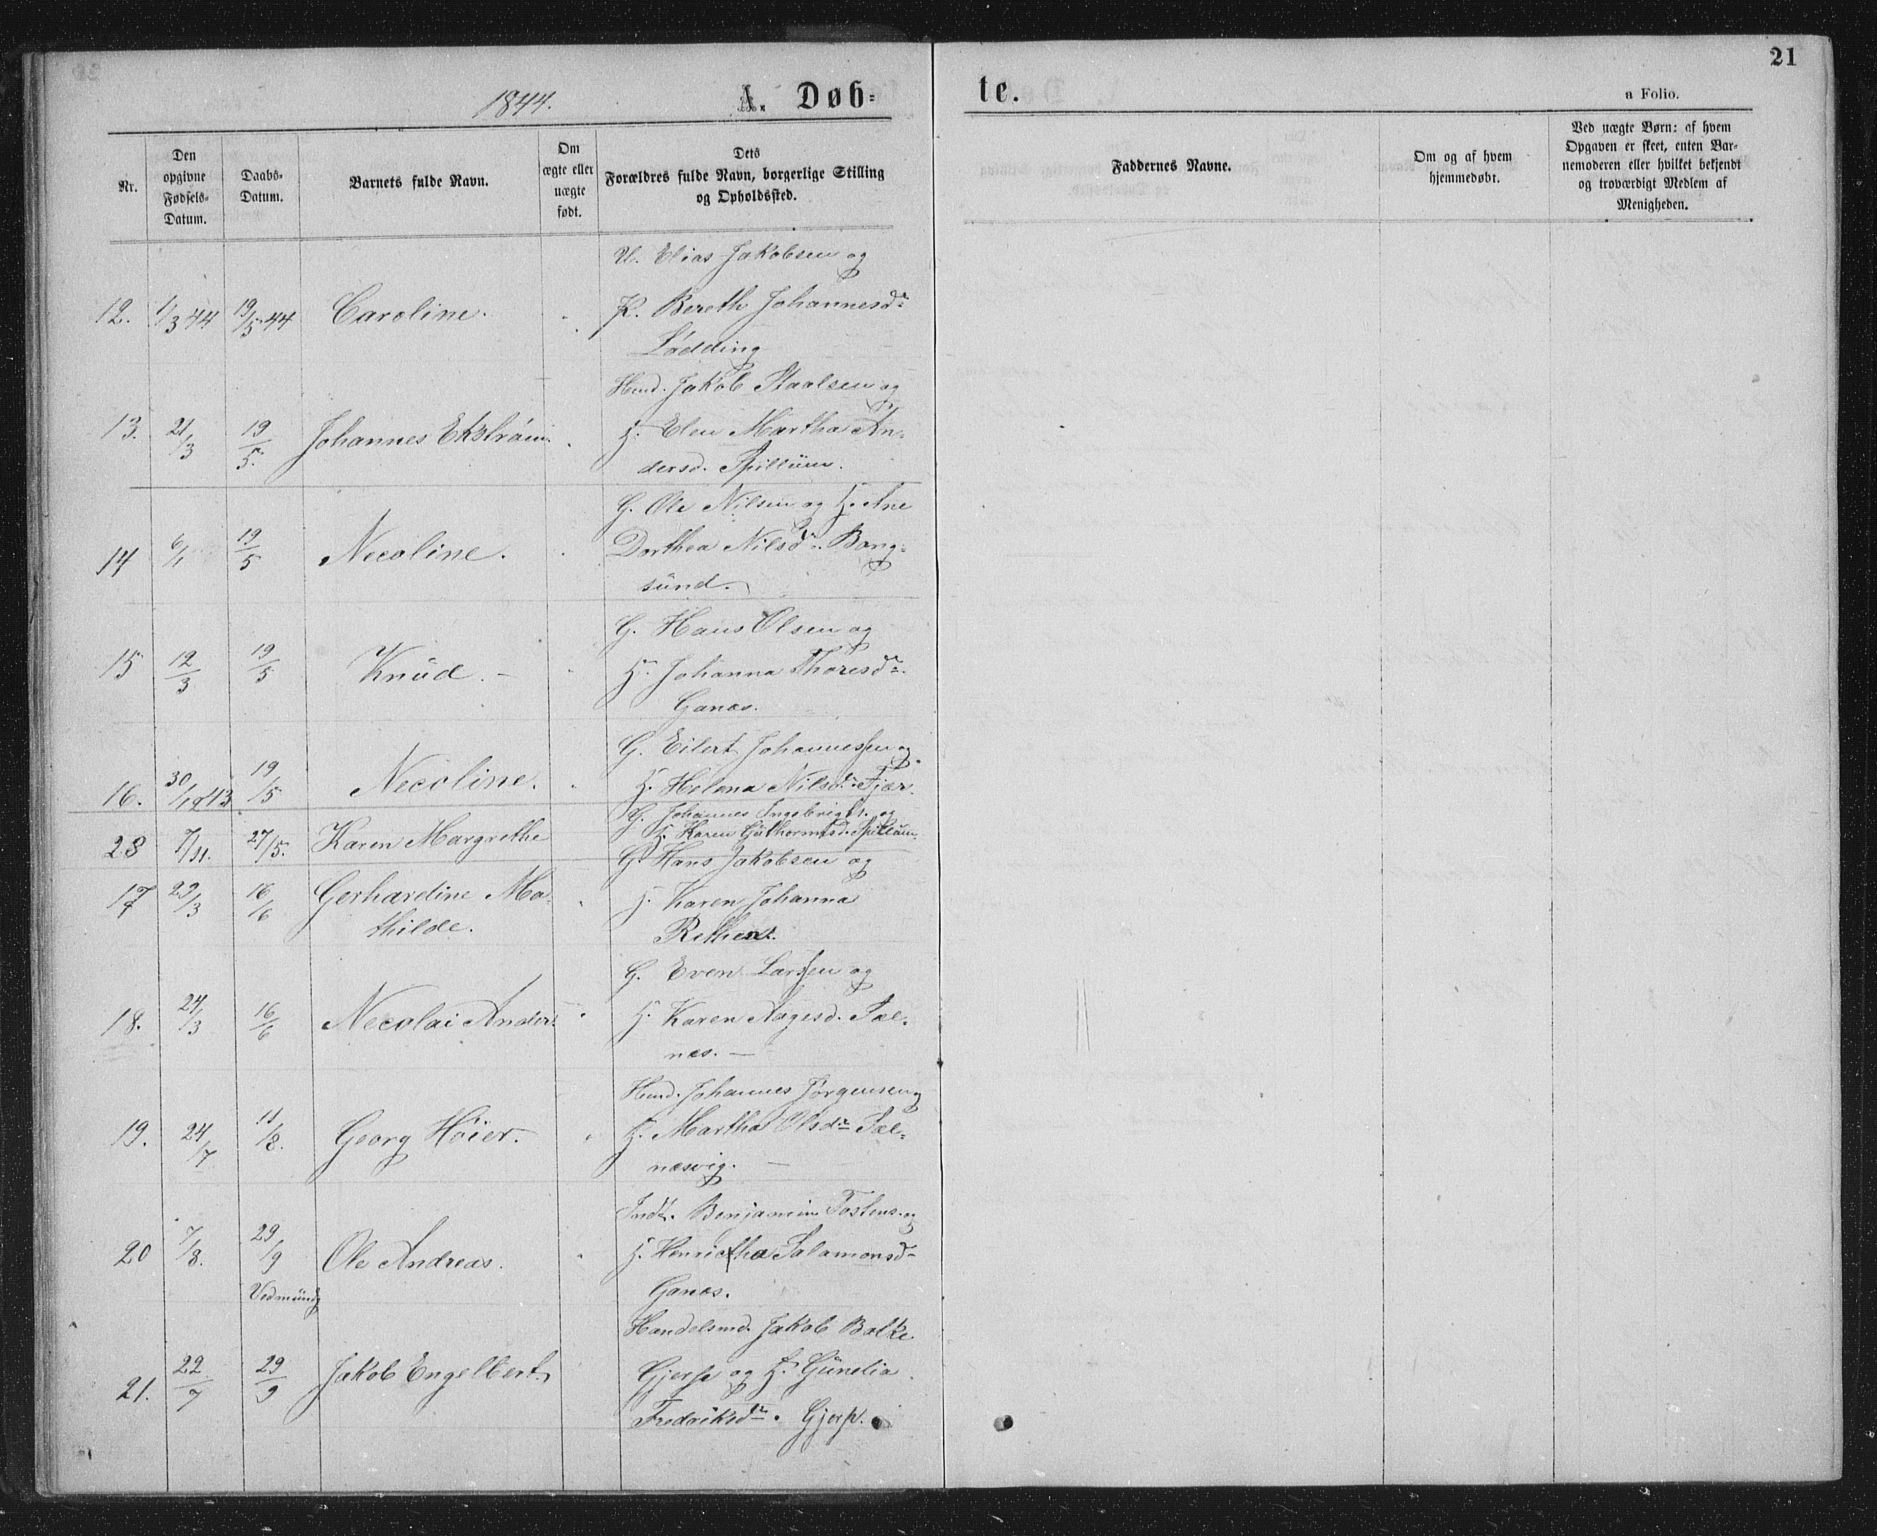 21
1844.
A. Døb-
te.
a Folio.
Nr.
Den opgivne Fødsels-Datum.
Daabs-Datum.
Barnets fulde Navn.
Om ægte eller uægte født.
Dets Forældres fulde Navn, borgerlige Stilling og Opholdssted.
Faddernes Navne.
Om og af hvem hjemmedøbt.
Ved uægte Børn: af hvem Opgaven er skeet, enten Barnemoderen eller hvilket bekjendt og troværdigt Medlem af Menigheden.
U. Elias Jakobsen og
12. 1/3 44 19/5 44 Caroline. K. Bereth Johannesdr
Lødding
Hmd. Jakob Staalsen og
13. 21/3 19/5. Johannes Ekstrøm. H. Elen Martha An-
dersd. Spillum.
G. Ole Nilsen og H. Ane
14 6/1 19/5 Necoline. Dorthea Nilsdr. Bang-
sund.
G. Hans Olsen og
15 12/3 19/5 Knud. – H. Johanna Thoresdr.
Ganæs.
G. Eilert Johannesen og
16. 30/1843 19/5 Necoline. H. Helena Nilsdr Fjær.
G. Johannes Ingebrigt. og
28 7/11. 27/5. Karen Margrethe H. Karen Guthormsd. Spillum.
G. Hans Jakobsen og
17 29/3 16/6 Gerhardine Ma- H. Karen Johanna
thilde.
G. Even Larsen og
18. 24/3 16/6 Necolai Anders. H. Karen Aagesd. Sæl-
næs. –
Hmd. Johannes Jørgensen og
19. 24/7 11/8. Georg Høier. H. Martha Olsdr Sæl-
næsvig. –
Indr. Benjamin Tostens. og
20 7/8. 29/9 Ole Andreas. H. Henrictha Salamonsdr
Ganæs.
Handelsmd. Jakob Balke
21. 22/7 29/9 Jakob Engelbert. Gjerp og H. Gunelia
Fredriksdr. Gjerp.